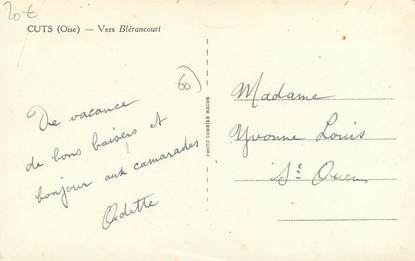 20€
CUTS (Oise) — Vers Blérancourt
60)
De vacance
de bons baisers et
bonjour aux camarades !
Odette
PHOTO COURRIER MACON
Madame
Yvonne Louis
St Ouen